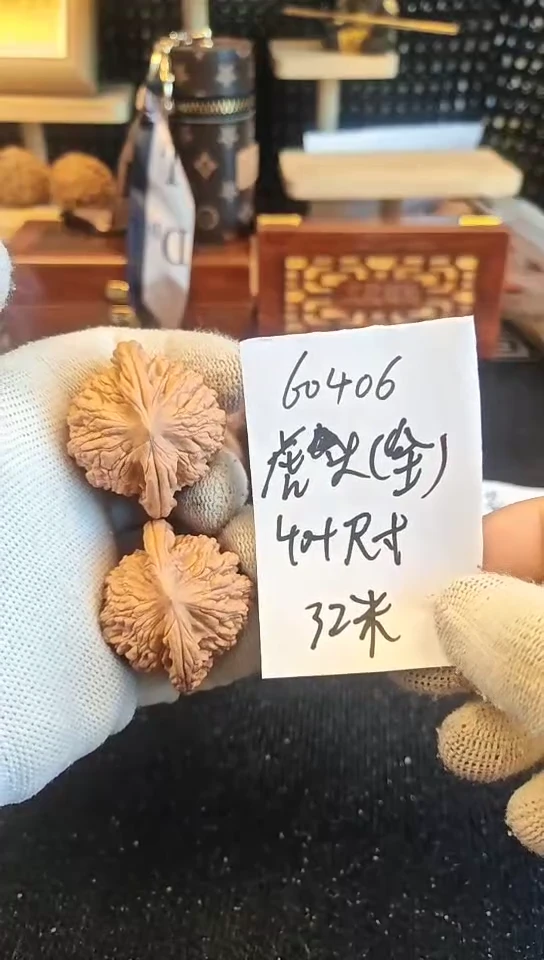 60406
虎头(全)
404尺寸
32米